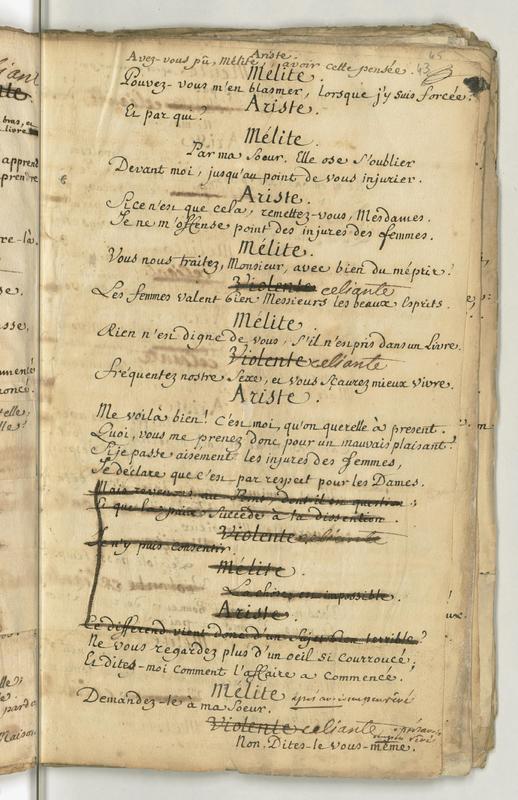 Ariste.
Avez-vous pû, Mélite, avoir cette pensée.
63
65
Mélite.
Pouvez-vous m'en blasmer, lorsque j'y suis forcée.
Ariste.
Et par qui?
Mélite.
Par ma Soeur. Elle ose s'oublier
Devant moi, jusqu'au point de vous injurier.
Ariste.
Si ce n'est que cela, remettez-vous, Mesdames.
Je ne m'offense point des injures des femmes.
Mélite.
Vous nous traitez, Monsieur, avec bien du mépris.
Violente celiante
Les femmes valent bien Messieurs les beaux Esprits.
Mélite.
Rien n'est digne de vous, s'il n'est pris dans un Livre.
Violente celiante
Fréquentez nostre Sexe, et vous Sçaurez mieux vivre.
Ariste.
Me voilà bien! C'est moi, qu'on querelle à present.
Quoi, vous me prenez donc pour un mauvais plaisant?
Si je passe aisement les injures des femmes,
Je déclare que c'est par respect pour les Dames.
Mais revenons au Point dont il est question;
Et que la paix Succède à la dissention.
Violente celiante
Je n'y puis consentir.
Mélite.
La chose est impossible.
Ariste.
Ce différend vient donc d'un Sujet bien terrible?
Ne vous regardez plus d'un oeil si courroucé;
Et dites-moi comment l'affaire a commencé.
Mélite après avoir un peu rêvé
Demandez-le à ma Soeur.
Violente celiante après avoir un peu rêvé
Non. Dites-le vous-même.